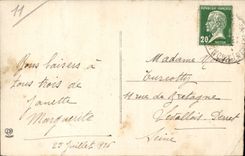 11
REPUBLIQUE FRANÇAISE
20
Bons baisers à
tous trois de
Janette
Marguerite
25 Juillet 1926
Madame
Turcotty
11 rue de Bretagne
Levallois-Perret
Seine